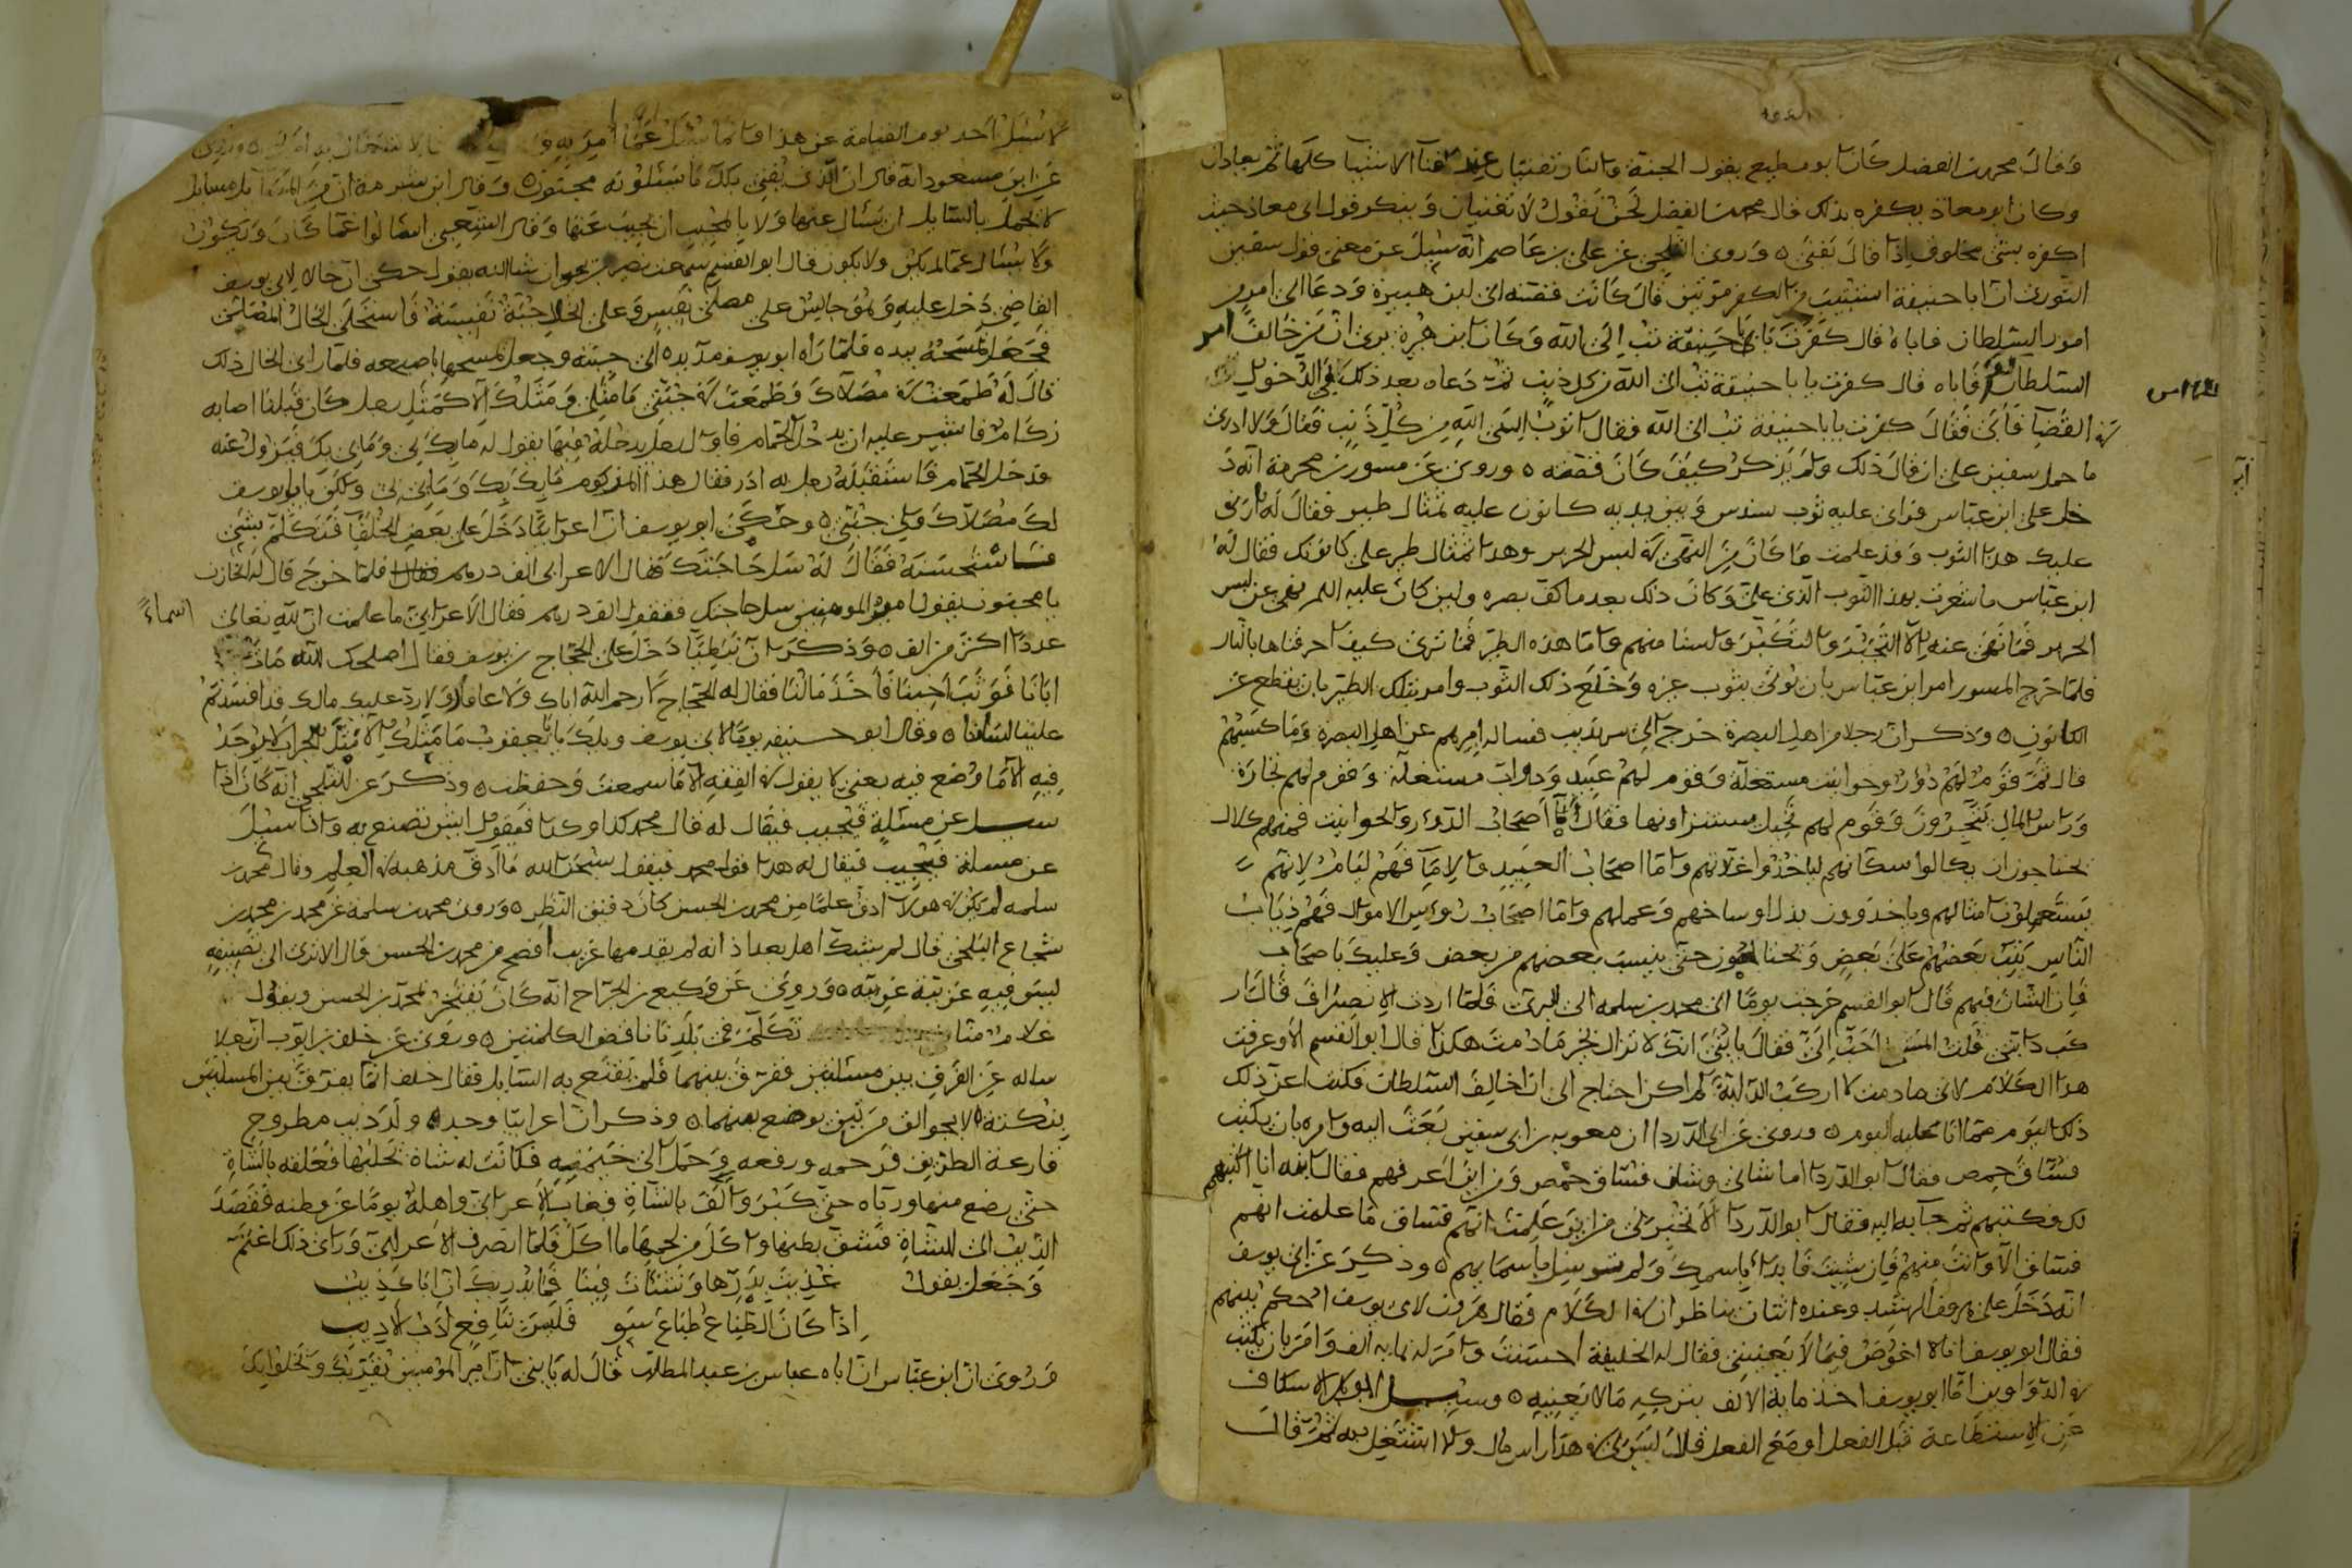 وقال محمد بن الفضل كان ابو مطيع يقول الجنة والنار تفنيان عند فناء الاشيا كلها ثم يعادان
وكان ابو معاذ يكفره بذلك قال محمد بن الفضل نحن نقول لا تفنيان وينكر قول ابى معاذ حيث
اكفره بشئ مخلوف اذا قال يفنى وروى الثلجى عن على بن عاصم انه سئل عن معنى قول سفين
الثورى ان ابا حنيفة استتيب من الكفر مرتين قال كانت فتنة ابن هبيرة ودعا الى امور
امور السلطان فاباه قال كفرت يا با حنيفة تب الى الله وكان ابن هبيرة يرى ان من خالف امر
السلطان كفر فاباه قال كفرت يا با حنيفة تب الى الله من كل ذنب ثم دعاه بعد ذلك الى الدخول
فى القضا فابى فقال كفرت يا با حنيفة تب الى الله فقال اتوب الى الله من كل ذنب فقال ولا ادرى
ما حمل سفين على ان قال ذلك ولم يذكر كيف كان قصته وروى عن مسور بن مخرمة انه د
خل على ابن عباس فراى عليه ثوب سندس وبين يديه كانون عليه تمثال طير فقال له ارى
عليك هذا الثوب وقد علمت ما كان من النهى فى لبس الحرير وهذا تمثال طير على كانونك فقال له
ابن عباس ما شعرت بهذا الثوب الذى على وكان ذلك بعد ما كف بصره ولين كان عليه السلم نهى عن لبس
الحرير فما نهى عنه الا للتجبر والتكبر ولسنا منهم واما هذه الطير فما ترى كيف احرقناها بالنار
فلما خرج المسور امر ابن عباس بان يوتى بثوب غيره وخلع ذلك الثوب وامر بتلك الطير بان تقطع عن
الكانون وذكر ان رجلا من اهل البصرة خرج الى فساله اميرهم عن اهل البصرة وما كسبهم
قال ثم قوم لهم دور وحوانيت مستغلة وقوم لهم عبيد ودواب مستغلة وقوم لهم تجارة
وراس المال يتجرون وقوم لهم نخيل فقال اما اصحاب الدور والحوانيت فمنهم كلاب
يحتاجون ان سكانهم لياخذوا غلاتهم واما اصحاب العبيد والاما فهم ليام لانهم
يستعملون امثالهم وياخذون بدل اوساخهم وعملهم واما اصحاب روس الاموال فهم ذياب
الناس يثب بعضهم على بعض حتى بعضهم من بعض وعليك باصحاب
فان الشان فيهم قال ابو القسم خرجت يوما الى محمد بن سلمة فلما اردت الانصراف قال ار
كب دابتى قلت المشى احب الى فقال يا بنى انك لا تزال بخير ما دمت هكذا قال ابو القسم الا وعرفت
هذا الكلام لانى ما دمت لا اركب الدابة لم اكن احتاج الى ان اخالف السلطان فكنت اعز ذلك
ذلك اليوم مما انا عليه اليوم وروى عن ابى الدردا ان معوية بن ابى سفين بعث اليه وامره بان يكتب
فساق حمص فقال ابو الدردا ما شانى وشان فساق حمص ومن اين اعرفهم فقال ابنه انا اكتبهم
لك فكتبهم ثم جا به اليه فقال ابو الدردا الا تخبرنى من اين علمت انهم فساق ما علمت انهم
فساق الا وانت منهم فان شيت فابدا باسمك ولم باسمايهم وذكر عن ابى يوسف
انه دخل على هرون الرشيد وعنده اثنان يناظران فى الكلام فقال هرون لابى يوسف احكم بينهم
فقال ابو يوسف انا لا اخوض فيما لا يعنينى فقال له الخليفة احسنت وامر له بماية الف وامر بان يكتب
فى الدواوين ان ابا يوسف اخذ ماية الالف بتركه ما لا يعنيه وسئل ابو بكر الاسكاف
عن الاستطاعة قبل الفعل او مع الفعل قال ليس لى فى هذا راس مال ولا اشتغل به ثم قال
لا يسئل احد يوم القيامة عن هذا انما يسئل عما امر به
عن ابن مسعود انه قال ان الذى يفتى بكل ما يسئلونه مجنون وقال ابن شبرمة ان من المسايل مسايل
لا يجمل بالسايل ان يسال عنها ولا بالمجيب ان يجيب عنها وقال الشعبى اسالوا عما كان ويكون
ولا يسال عما لم يكن ولا يكون قال ابو القسم سمعت نصير بن يحيى ان شا الله يقول حكى ان خالا لابى يوسف
القاضى دخل عليه وهو جالس على مصلى نفيس وعلى الخال جبة نفيسة فاستحلى الخال المصلى
فجعل يمسحه بيده فلما راه ابو يوسف مد يده الى جبته وجعل يمسحها باصبعه فلما راى الخال ذلك
قال له طمعت فى مصلاك وطمعت فى جبتى ما مثلى ومثلك الا كمثل رجل كان قبلنا اصابه
زكام فاشير عليه ان يدخل الحمام فاول رجل يدخله فيها يقول له ما بك لى وما بى بك فيزول عنه
فدخل الحمام فاستقبله رجل به ادر فقال هذا المزكوم ما بى بك وما بك لى ولكن يا با يوسف
لك مصلاك ولى جبتى وحكى ابو يوسف ان اعرابيا دخل على بعض الخلفا فتكلم بشى
فاستحسنه فقال له سل حاجتك فقال الاعرابى الف درهم فلما خرج قال له الخازن
يا مجنون يقول امير المومنين سل حاجتك فتقول الف درهم فقال الاعرابى ما علمت ان لله تعالى اسماء
عددا اكثر من الف وذكر ان نبطيا دخل على الحجاج بن يوسف فقال اصلحك الله مات
ابانا فوثب اخينا فاخذ مالنا فقال له الحجاج لا رحم الله اباك ولا عافا ولا رد عليك مالك قد افسدتم
علينا لساننا وقال ابو حنيفة يوما لابى يوسف ويلك يا با يعقوب ما مثلك الا مثل الجراب لا يوجد
فيه الا ما وضع فيه يعنى لا يقول فى الفقه الا ما سمعت وحفظت وذكر عن الثلجى انه كان اذا
سئل عن مسئلة فيجيب فيقال له قال محمد كذا وكذا فيقول ايش تصنع به واذا سيل
عن مسئلة فيجيب فيقال له هذا قول محمد فيقول سبحن الله ما ادق مذهبه فى العلم وقال محمد بن
سلمه لم يكن فى هولا ادق علما من محمد بن الحسن كان دقيق النظر وروى محمد بن سلمة عن محمد بن محمد بن
شجاع البلخى قال لم يشك اهل بغداد انه لم يقدمها غريب افصح من محمد بن الحسن قال الا ترى الى تصنيفه
ليس فيه عربية غريبة وروى عن وكيع بن الجراح انه كان يفتخر بمحمد بن الحسن ويقول
غلام منا تكلم فى بلدنا ناقض الكلمتين وروى عن خلف بن ايوب ان رجلا
ساله عن الفرق بين مسئلتين ففرق بينهما فلم يقتنع به السايل فقال خلف انما يفرق بين المسلتين
بنكتة لا بجوالق مرتين يوضع بينهما وذكر ان اعرابيا وجد ولد ذيب مطروح
قارعة الطريق فرحمه ورفعه وحمل الى خيمته فكانت له شاة يحلبها فعلقه بالشاة
حتى رضع منها ورباه حتى كبر والف بالشاة فغاب الاعرابى واهله يوما عن وطنه فقصد
الذيب الى الشاة فشق بطنها واكل من لحمها ما اكل فلما انصرف الاعرابى وراى ذلك اغتم
وجعل يقول غذيت بدرها ونشات فينا فما يدريك ان اباك ذيب
اذا كان الطباع طباع سوء فليس بنافع ادب الاديب
وروى ان ابن عباس ان اباه عباس بن عبد المطلب قال له يا بنى ان امير المومنين يقربك ويخلوا بك